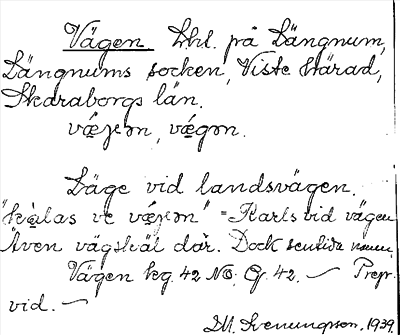 Vägen. Lhl. på Längnum,
Längnums socken, Viste härad,
Skaraborgs län.
væ̀jen, væ̀gen.
Läge vid landsvägen.
"kàlas ve væ̀jen" = Karls vid vägen
Även vägskäl där. Dock sentida namn.
Vägen kg. 42 NO. Cf. 42. — Prep.
vid. —
M. Svenungson. 1939.